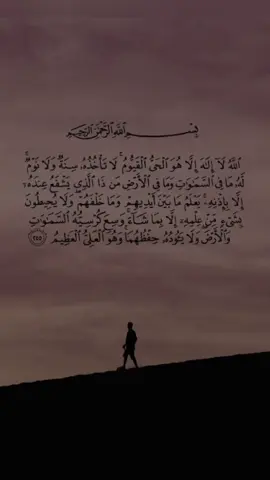 بِسْمِ ٱللَّهِ ٱلرَّحْمَٰنِ ٱلرَّحِيمِ
ٱللَّهُ لَآ إِلَٰهَ إِلَّا هُوَ ٱلْحَىُّ ٱلْقَيُّومُ ۚ لَا تَأْخُذُهُۥ سِنَةٌ وَلَا نَوْمٌ ۚ
لَّهُۥ مَا فِى ٱلسَّمَٰوَٰتِ وَمَا فِى ٱلْأَرْضِ ۗ مَن ذَا ٱلَّذِى يَشْفَعُ عِندَهُۥٓ
إِلَّا بِإِذْنِهِۦ ۚ يَعْلَمُ مَا بَيْنَ أَيْدِيهِمْ وَمَا خَلْفَهُمْ ۖ وَلَا يُحِيطُونَ
بِشَىْءٍ مِّنْ عِلْمِهِۦٓ إِلَّا بِمَا شَآءَ ۚ وَسِعَ كُرْسِيُّهُ ٱلسَّمَٰوَٰتِ
وَٱلْأَرْضَ ۖ وَلَا يَـُٔودُهُۥ حِفْظُهُمَا ۚ وَهُوَ ٱلْعَلِىُّ ٱلْعَظِيمُ ۝٢٥٥